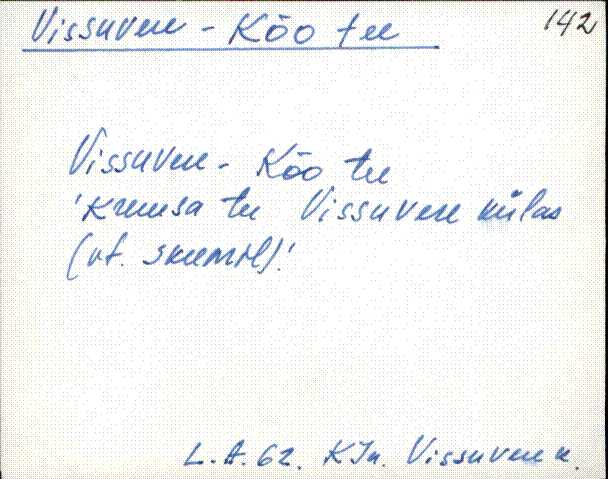 Vissuvere - Kõo tee 142
Vissuvere - Kõo tee
'Kruusa tee Vissuvere külas
(vt. skeemil)!'
L.A. 62. KJn. Vissuvere k.